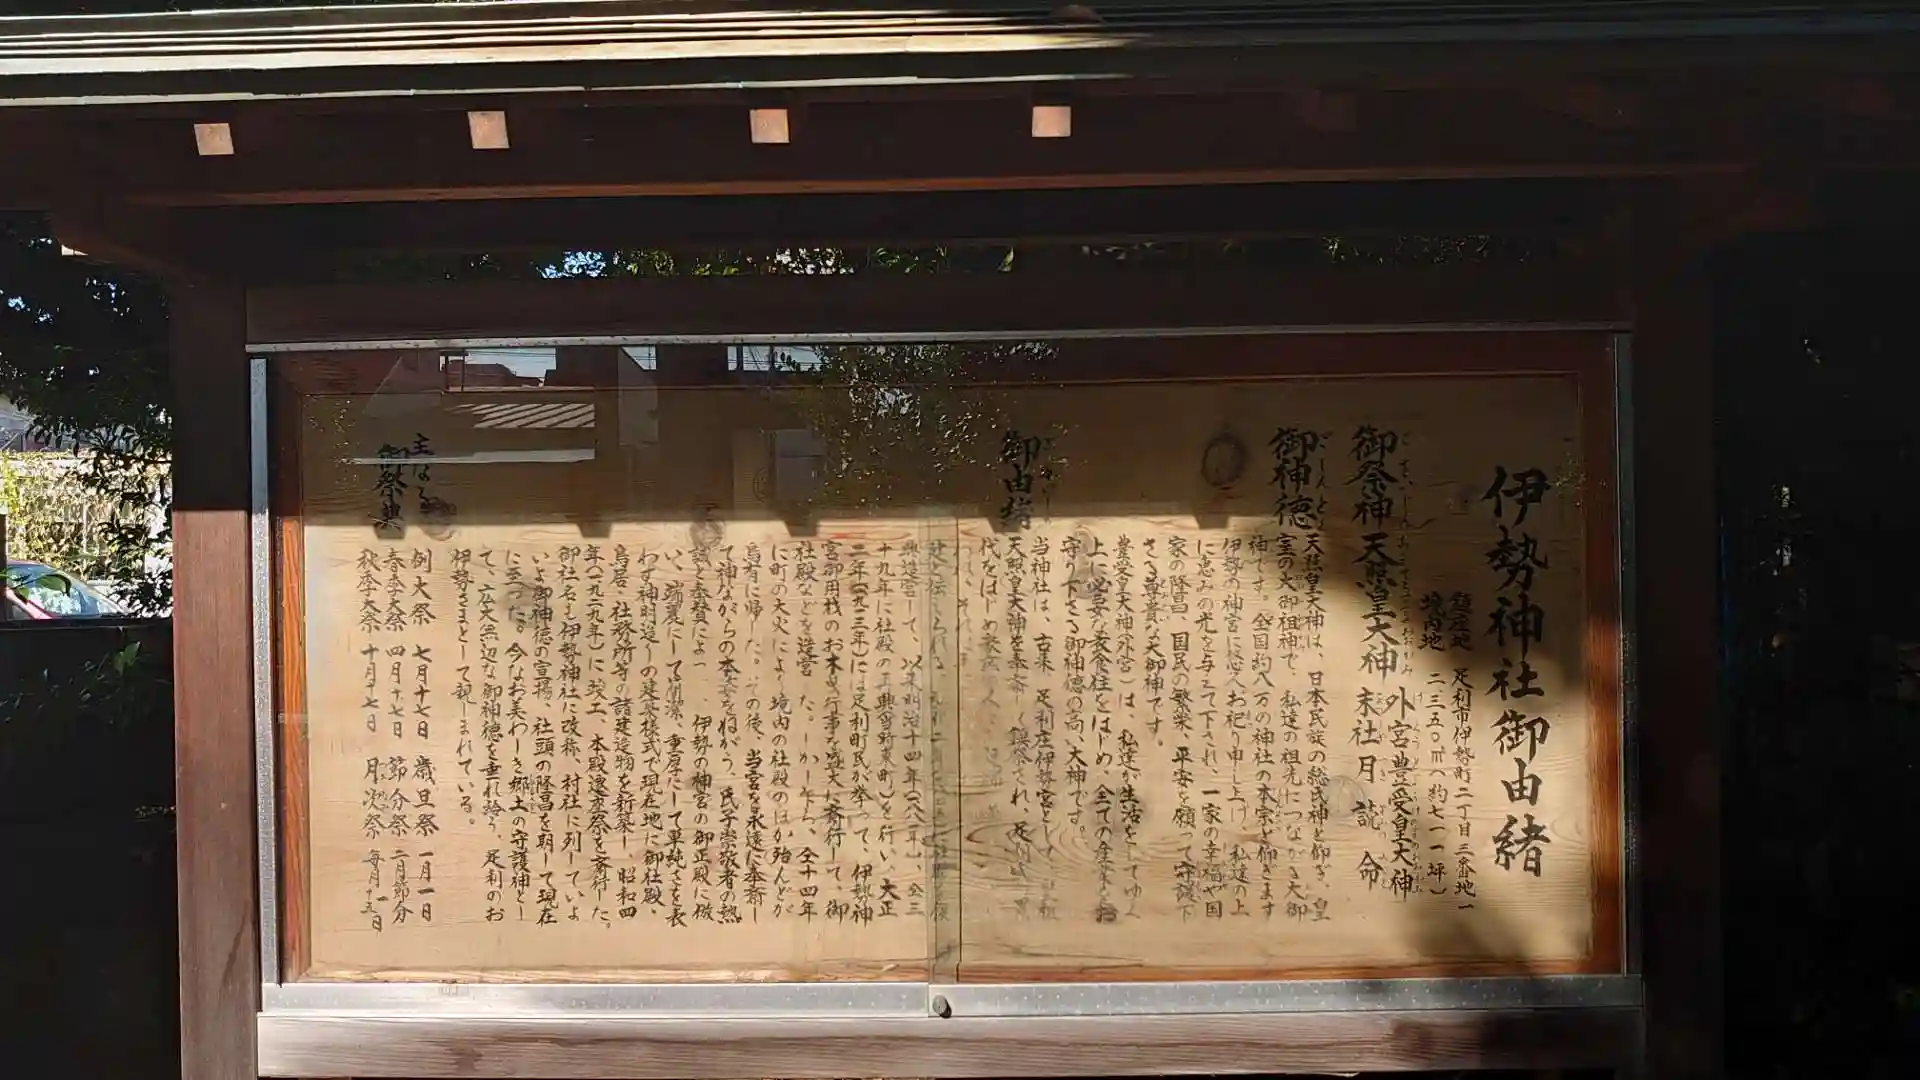 伊勢神社御由緒
鎮座地 足利市伊勢町二丁目三番地一
境内地 二三五〇㎡(約七一一坪)
御祭神 天照皇大神 外宮豊受皇大神
末社 月読命
御神徳 天照皇大神は、日本民族の総氏神と仰ぎ、皇
室の大御祖神で、私達の祖先につながる大御
神です。全国約八万の神社の本宗と仰ぎます
伊勢の神宮に悠久お祀り申し上げ、私達の上
に恵みの光を与えて下され、一家の幸福や国
家の隆昌、国民の繁栄、平安を願って守護下
さる尊貴な大御神です。
豊受皇大神(外宮)は、私達が生活をしてゆく
上に必要な衣食住をはじめ、全ての産業をお
守り下さる御神徳の高い大神です。
御由緒 当神社は、古来 足利庄伊勢宮として
天照皇大神を奉斎し鎮祭され、足利
代をはじめ
われ、それ
社と伝えられる。
興造営して、以来明治十四年(一八八一年)、仝三
十九年に社殿の再興(当町東町)を行い、大正
二年(一九一三年)には足利町民が挙って、伊勢神
宮御用材のお木曳行事を盛大に斎行して、御
社殿などを造営した。しかしながら、仝十四年
に町の大火により境内の社殿のほか殆んどが
烏有に帰した。その後、当宮を永遠に奉斎し
て神ながらの本姿をねがう、氏子崇敬者の熱
誠と奉賛により、伊勢の神宮の御正殿に倣
い、端麗にして簡潔、重厚にして単純さを表
わす神明造りの建築様式で現在地に御社殿、
鳥居、社務所等の諸建造物を新築し、昭和四
年(一九二九年)に竣工、本殿遷座祭を斎行した。
御社名も伊勢神社に改称、村社に列していよ
いよ御神徳の宣揚、社頭の隆昌を期して現在
に至った。今なお美わしき郷土の守護神とし
て、広大無辺な御神徳を垂れ給う、足利のお
伊勢さまとして親しまれている。
主なる御祭典
例大祭 七月十七日 歳旦祭 一月一日
春季大祭 四月十七日 節分祭 二月節分
秋季大祭 十月十七日 月次祭 毎月一日十五日